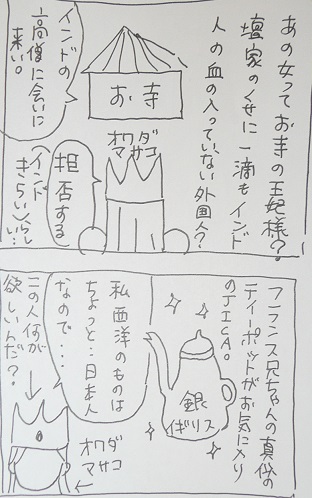 あの女ってお寺の王妃様？
壇家のくせに一滴もインド
人の血の入っていない外国人？
お寺
インドの
高僧に会いに
来い。
オワダ
マサコ
拒否する
（インド
きらいらしい…
フランス兄ちゃんの真似の
ティーポットがお気に入り
のJICA。
銀
イギリス
私西洋のものは
ちょっと…日本人
なので…
この人何が
欲しいんだ？
オワダ
マサコ